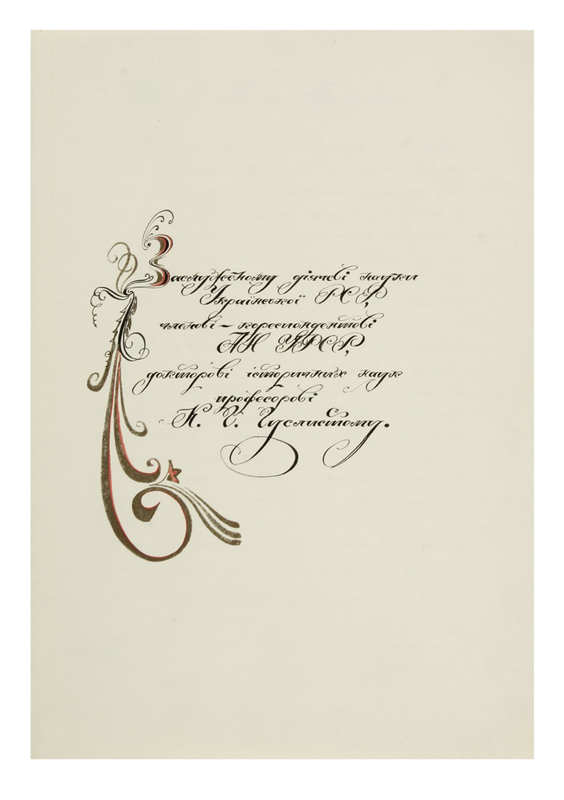 Заслуженому діячеві науки
Української РСР,
членові-кореспондентові
АН УРСР,
докторові історичних наук
професорові
К. Г. Гуслистому.